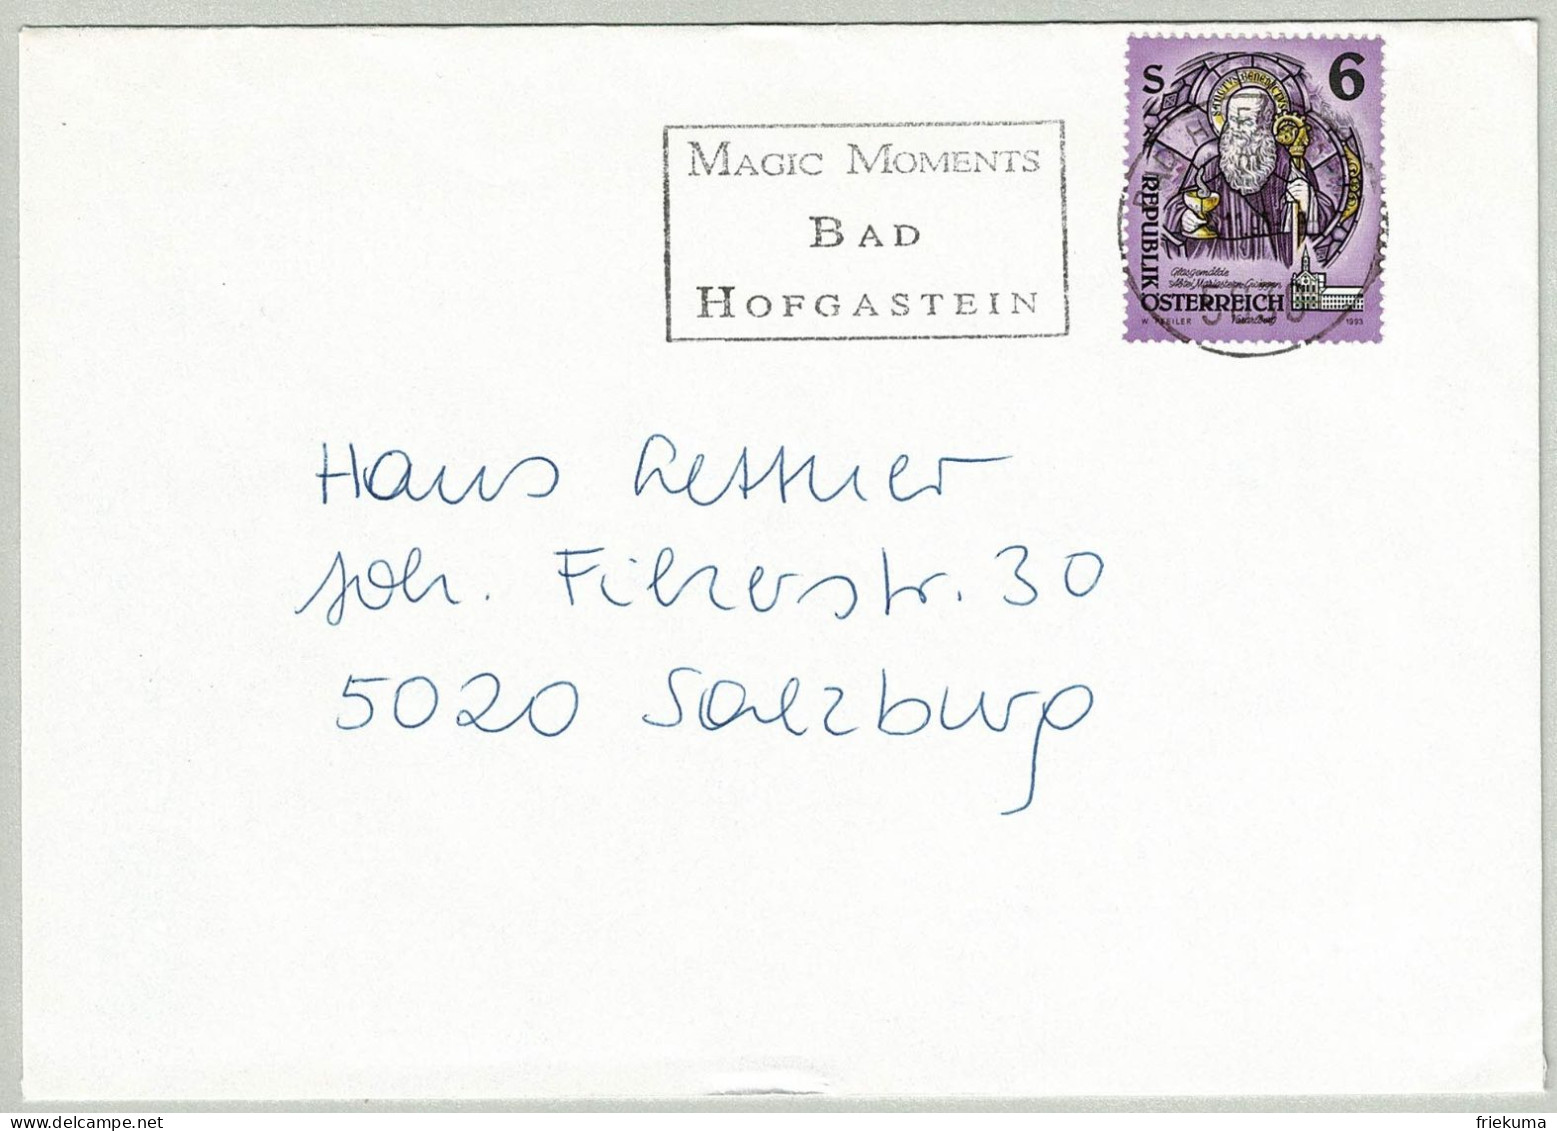 MAGIC MOMENTS
BAD
HOFGASTEIN
S 6
SANCTVS BENEDICTVS
REPUBLIK
Glasgemälde
Abtei Mariastern-Gwiggen
Vorarlberg
ÖSTERREICH
1993
Hans Lettner
Joh. Filzerstr. 30
5020 Salzburg
delcampe.net
friekuma